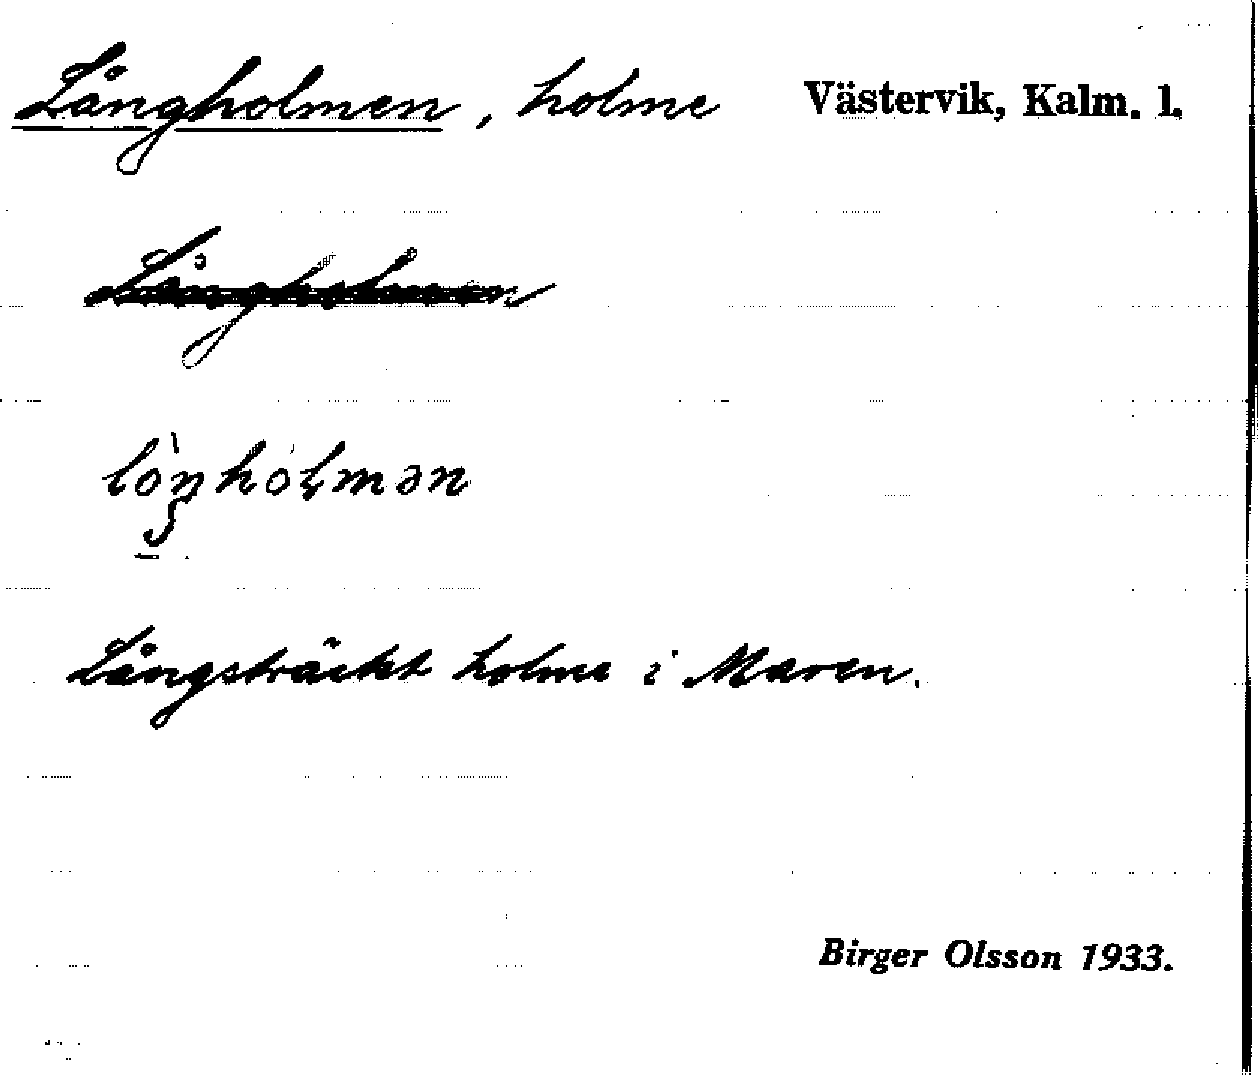 Långholmen, holme Västervik, Kalm. l.
Långholmen
Långsträckt holme i Maren.
Birger Olsson 1933.